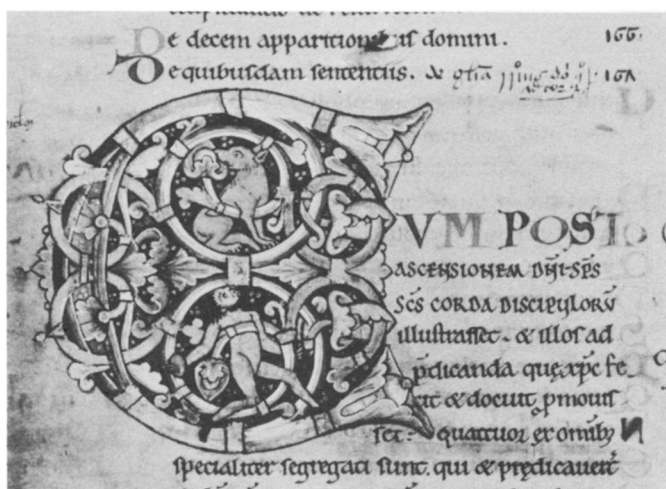 De decem apparitionibus domini. 166.
De quibusdam sententiis. de 167
CUM POSTQ
ASCENSIONEM DN̄I. SP̄S
SC̄S CORDA DISCIPULORŪ
illustrasset. & illos ad
p̄dicanda quę xp̄c fe
cit & docuit p̄mouis
set. quattuor ex omnibȝ
specialiter segregati sunt. qui & prędicauerūt